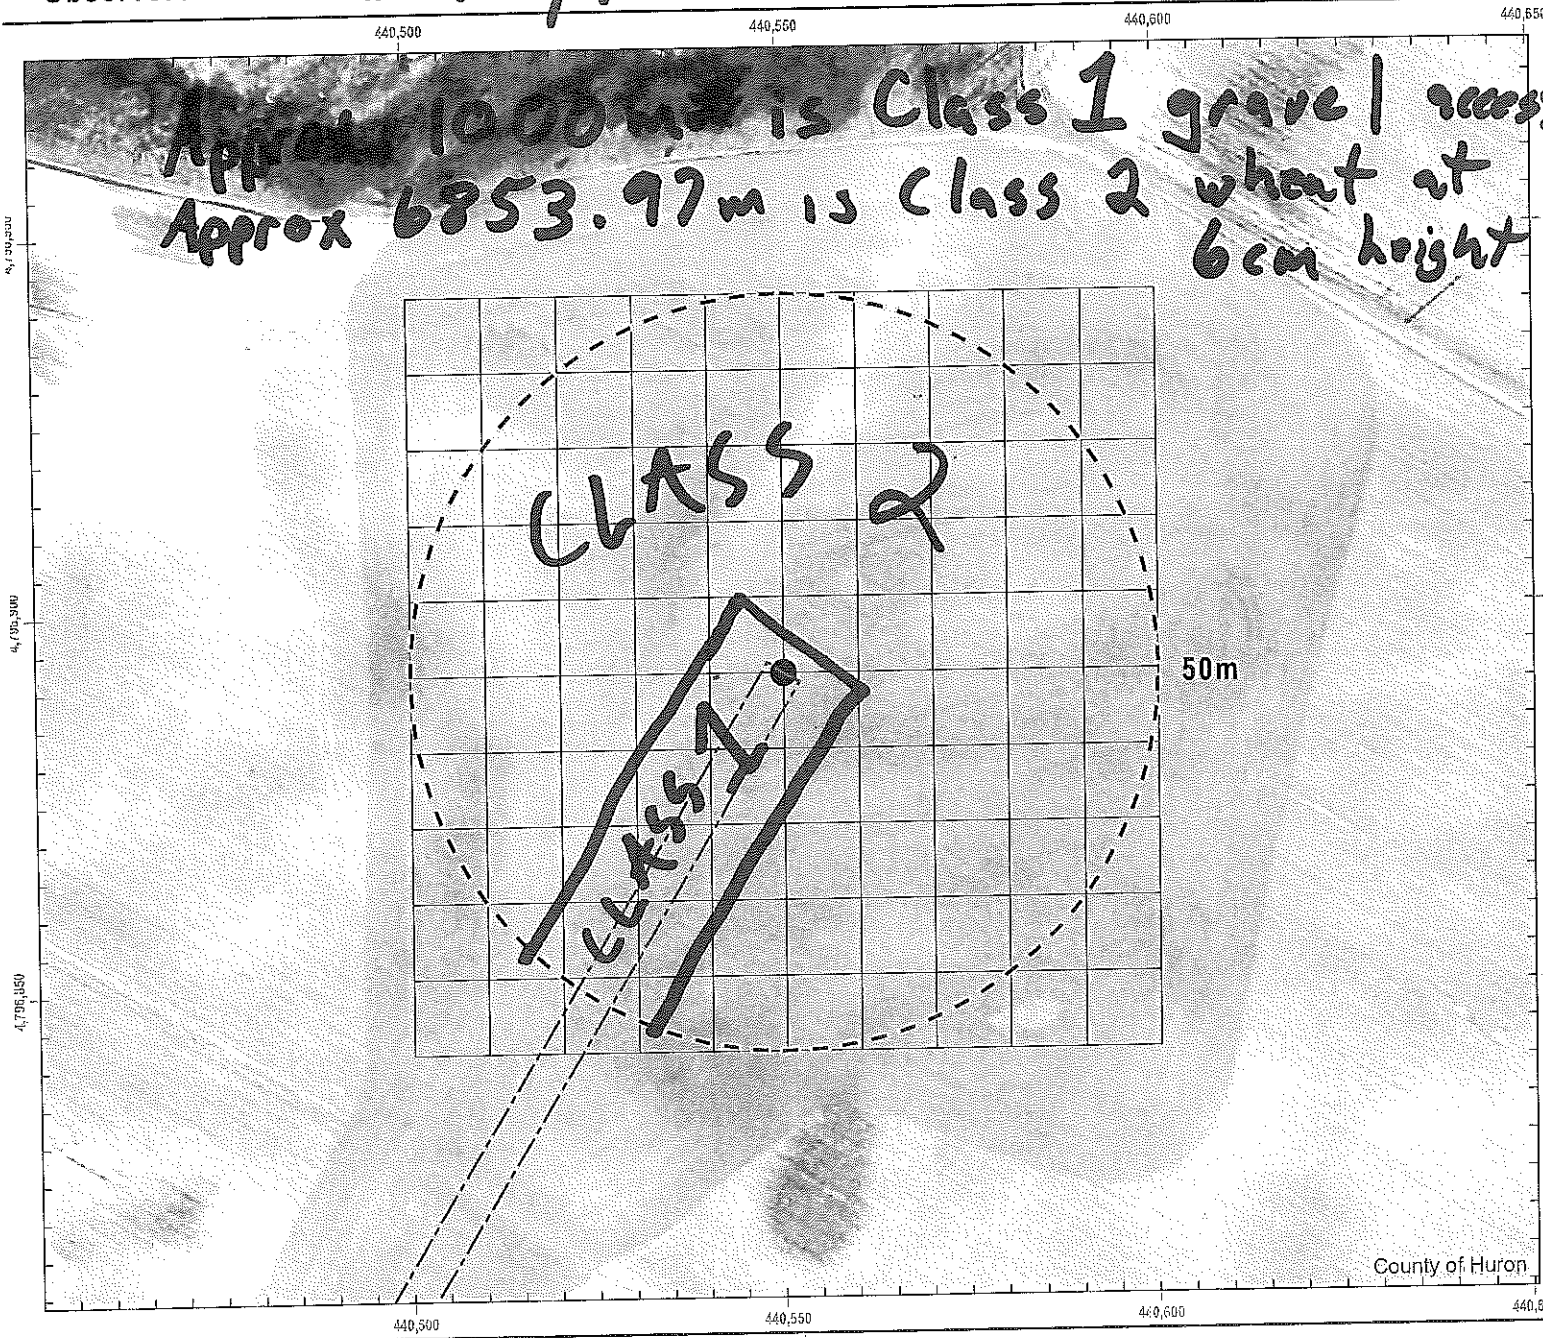 440,500 440,550 440,600 440,650
Approx 1000m² is Class 1 gravel access,
Approx 6853.97m is Class 2 wheat at
6cm height
CLASS 2
4,796,900
50m
CLASS 1
4,796,850
County of Huron
440,500 440,550 440,600